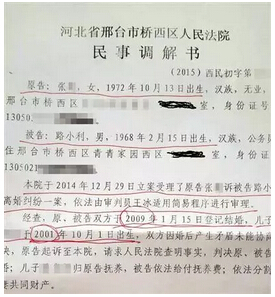 河北省邢台市桥西区人民法院
民事调解书
（2015）西民初字第
原告：张 ，女，1972年10月13日出生，汉族，无业，
邢台市桥西区 室，身份证号
13050
被告：路小利，男，1968年2月15日出生，汉族，公务员
住邢台市桥西区青青家园西区 室，身份证号
1305021
本院于2014年12月29日立案受理了原告张 诉被告路小
离婚纠纷一案，依法由审判员王冰适用简易程序进行审理。
经查，原、被告双方于2009年1月15日登记结婚，儿子
于2001年10月1日出生，双方因婚后产生矛盾未能协
，原告起诉至本院，请求人民法院查明事实，判决原、
婚，儿子 归原告抚养，被告依法给付抚养费，依法分
共同财产。